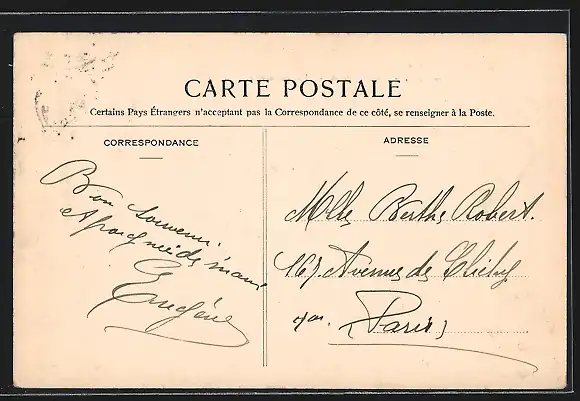 CARTE POSTALE
Certains Pays Étrangers n'acceptant pas la Correspondance de ce côté, se renseigner à la Poste.
CORRESPONDANCE
Bon souvenir.
Eugène
ADRESSE
Mlle Berthe Robert.
167 Avenue de Clichy
Paris